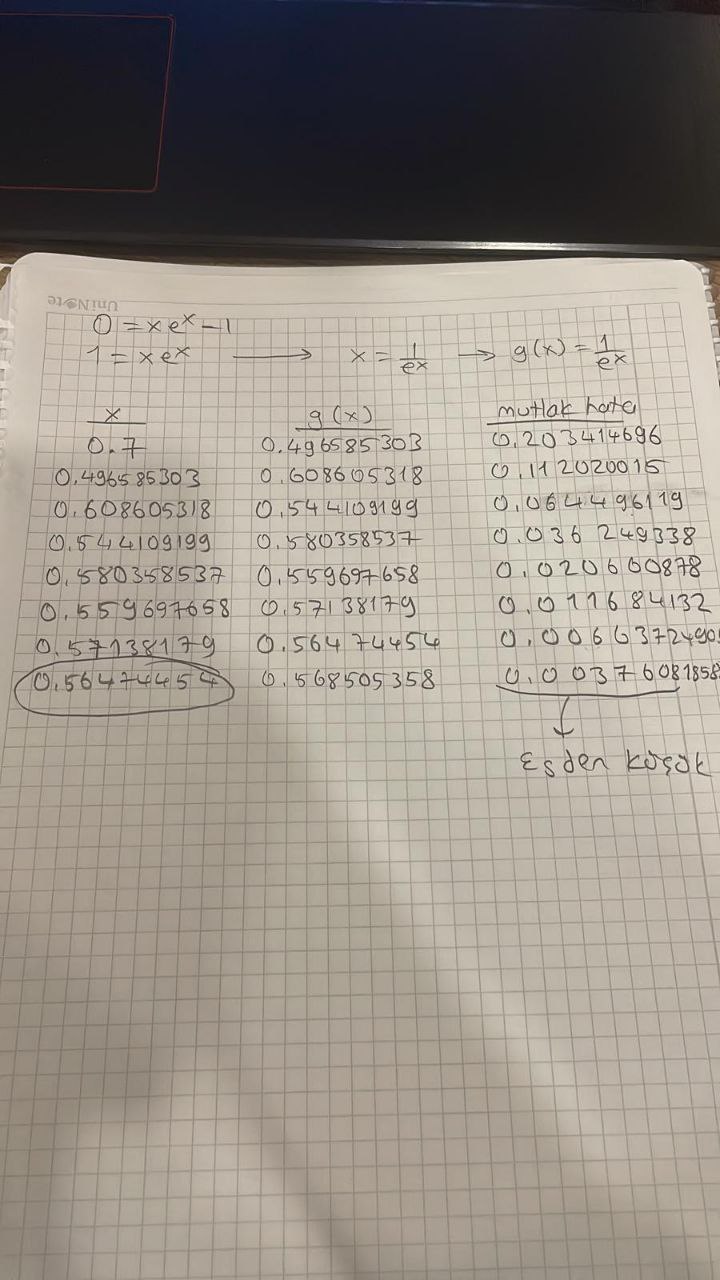 UniNote
0 = xe^x - 1
1 = xe^x → x = 1/e^x → g(x) = 1/e^x
x g(x) mutlak hata
0.7 0.496585303 0.203414696
0.496585303 0.608605318 0.112020015
0.608605318 0.544109199 0.064496119
0.544109199 0.580358537 0.036249338
0.580358537 0.559697658 0.020660878
0.559697658 0.57138179 0.011684132
0.57138179 0.56474454 0.0066372490
0.56474454 0.568505358 0.00376081858
Es den küçük